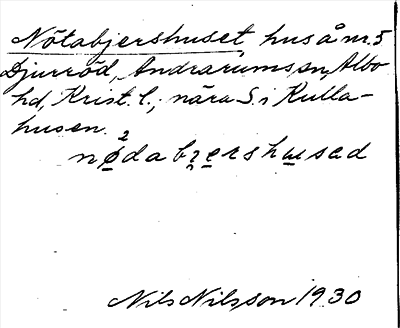 Nötabjershuset, hus å nr. 5
Djurröd, Andrarums sn, Albo
hd, Krist. l., nära S. i Kulla-
husen.
nø²dabjershusad
Nils Nilsson 1930